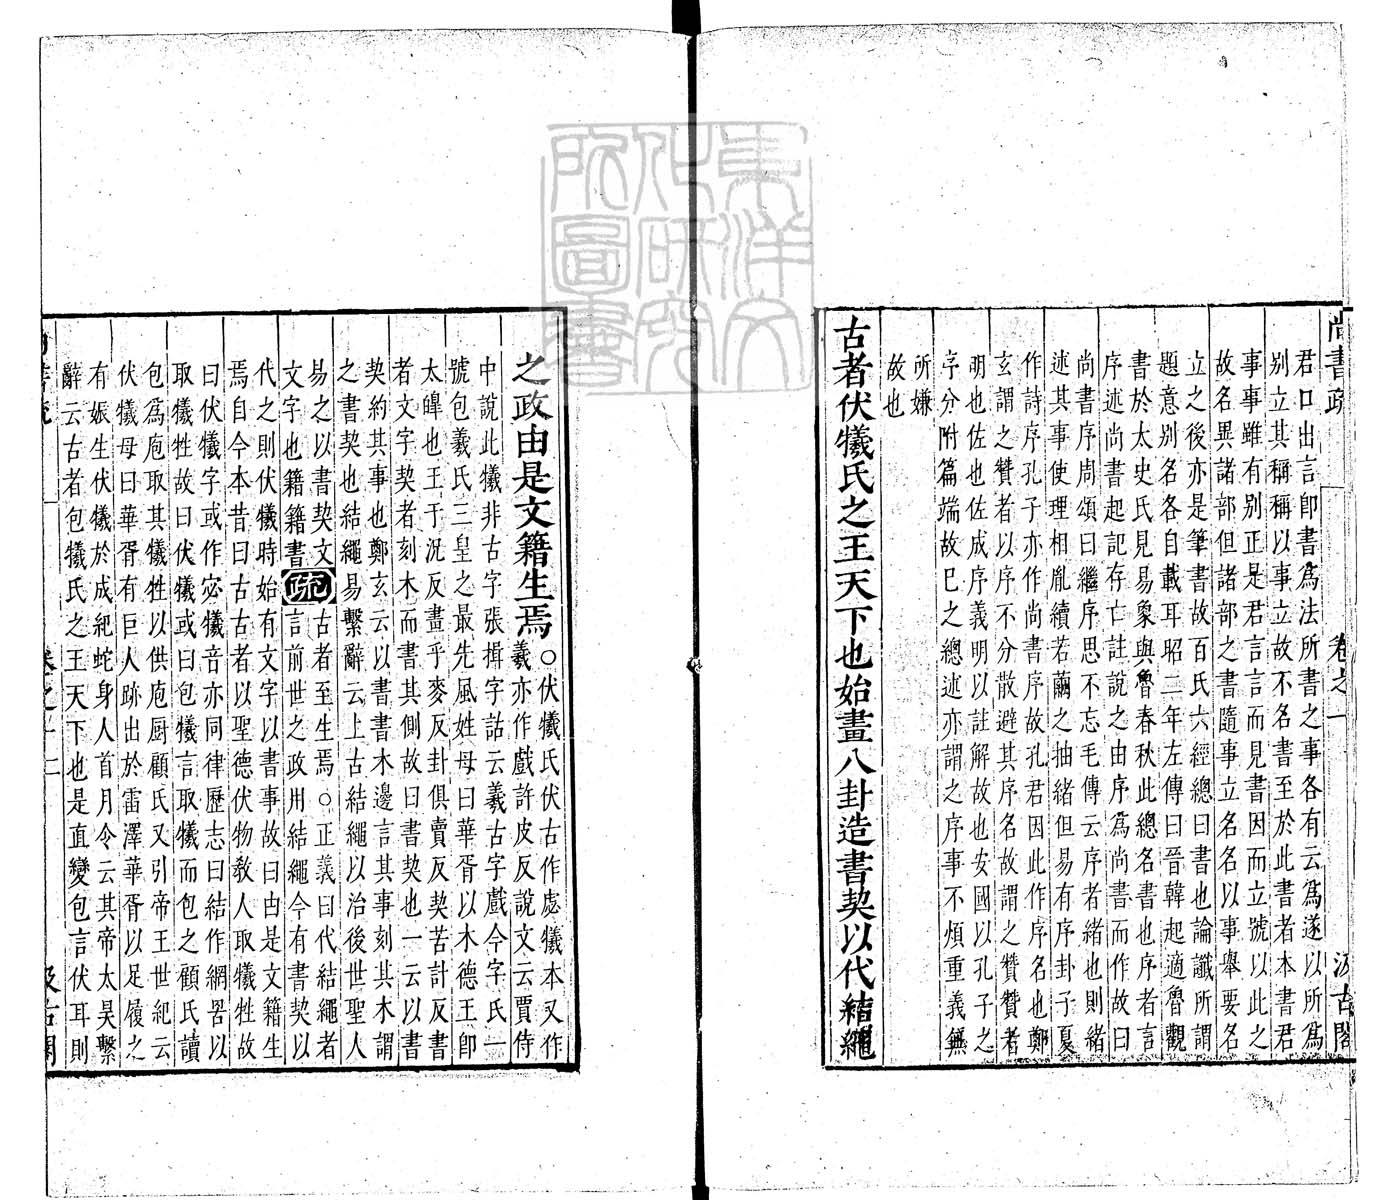 尚書疏 卷之一 汲古閣
君口出言即書為法所書之事各有云為遂以所為
別立其稱稱以事立故不名書至於此書者本書君
事事雖有別正是君言言而見書因而立號以此之
故名異諸部但諸部之書隨事立名名以事舉要名
立之後亦是筆書故百氏六經總曰書也論讖所謂
題意別名各自載耳昭二年左傳曰晉韓起適魯觀
書於太史氏見易象與魯春秋此總名書也序者言
序述尚書起記存亡註說之由序為尚書而作故曰
尚書序周頌曰繼序思不忘毛傳云序者緒也則緒
述其事使理相胤續若繭之抽緒但易有序卦子夏
作詩序孔子亦作尚書序故孔君因此作序名也鄭
玄謂之贊者以序不分散避其序名故謂之贊贊者
明也佐也佐成序義明以註解故也安國以孔子之
序分附篇端故巳之總述亦謂之序事不煩重義無
所嫌
故也
古者伏犧氏之王天下也始畫八卦造書契以代結繩
之政由是文籍生焉○伏犧氏伏古作虙犧本又作
羲亦作戲許皮反說文云賈侍
中說此犧非古字張揖字詁云羲古字戲今字氏一
號包羲氏三皇之最先風姓母曰華胥以木德王即
太皥也王于況反畫乎麥反卦俱賣反契苦計反書
者文字契者刻木而書其側故曰書契也一云以書
契約其事也鄭玄云以書書木邊言其事刻其木謂
之書契也結繩易繫辭云上古結繩以治後世聖人
易之以書契文
文字也籍籍書疏古者至生焉○正義曰代結繩者
言前世之政用結繩今有書契以
代之則伏犧時始有文字以書事故曰由是文籍生
焉自今本昔曰古古者以聖德伏物教人取犧牲故
曰伏犧字或作宓犧音亦同律歷志曰結作網罟以
取犧牲故曰伏犧或曰包犧言取犧而包之顧氏讀
包為庖取其犧牲以供庖厨顧氏又引帝王世紀云
伏犧母曰華胥有巨人跡出於雷澤華胥以足履之
有娠生伏犧於成紀蛇身人首月令云其帝太昊繫
辭云古者包犧氏之王天下也是直變包言伏耳則
尚書疏 卷之一 二 汲古閣
東洋文化研究所圖書